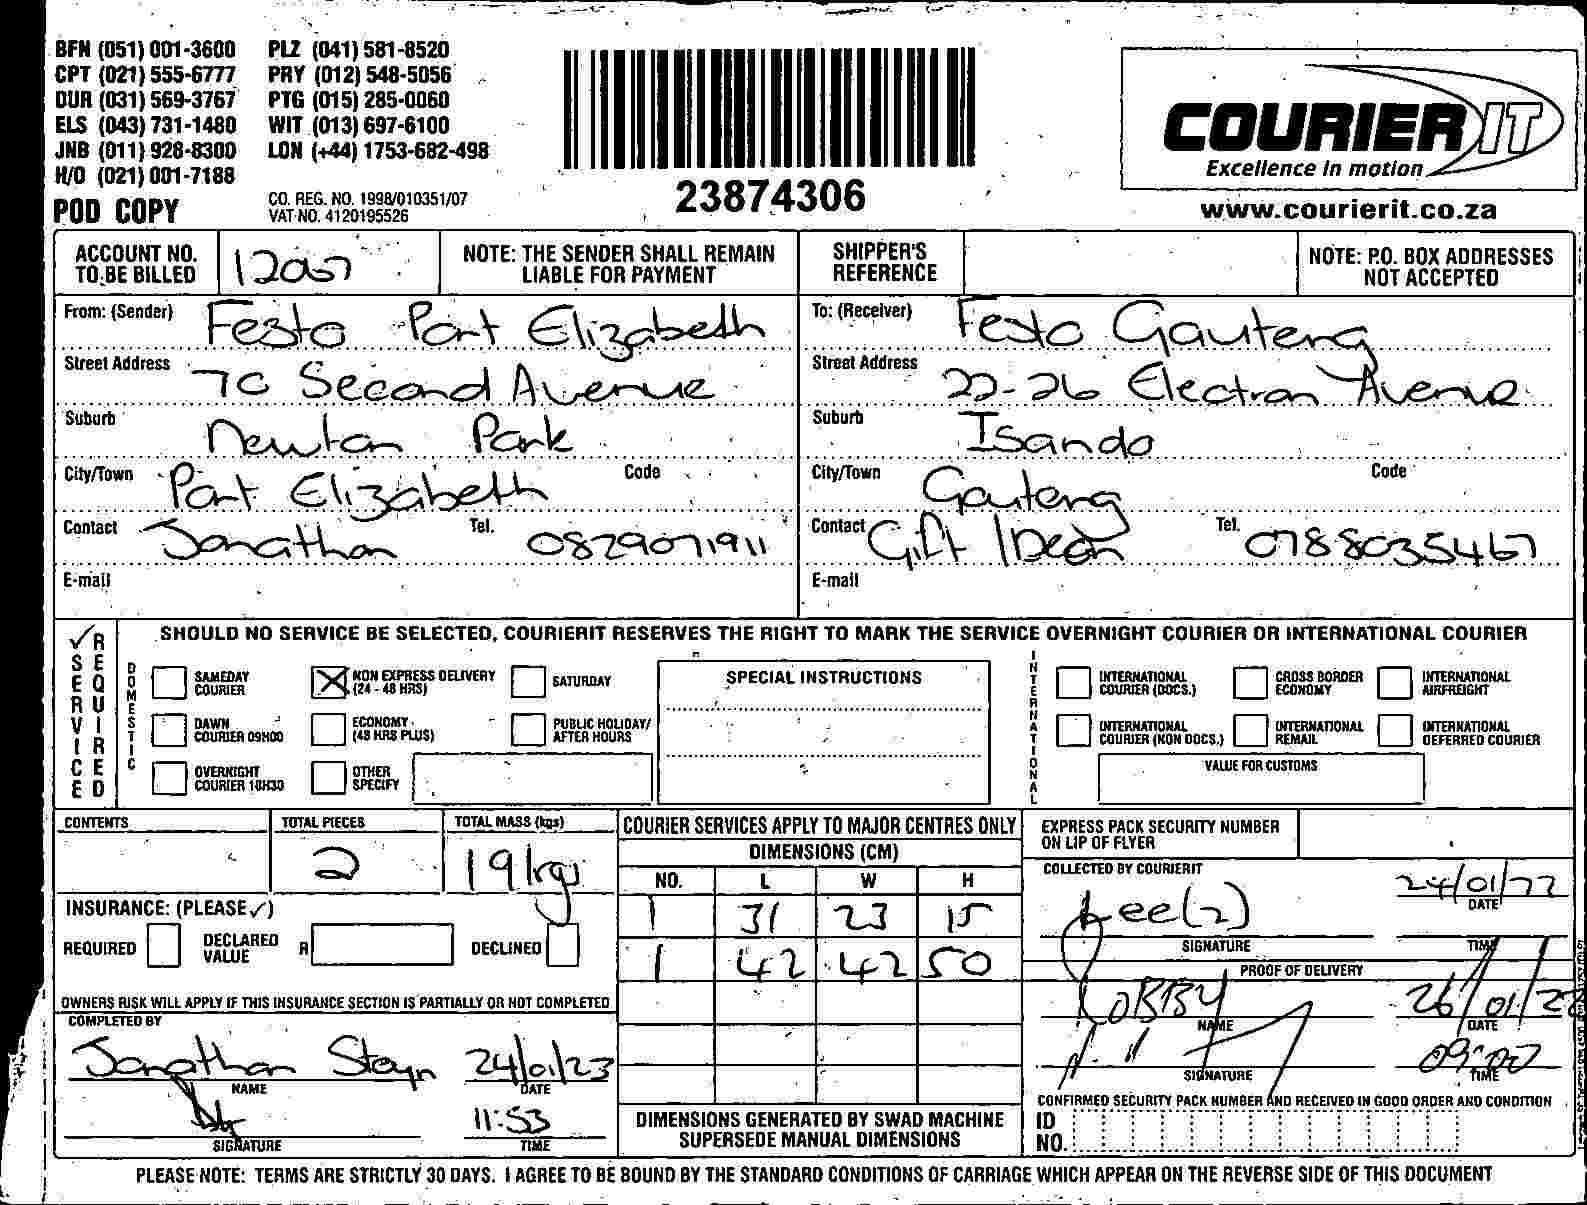 BFN (051) 001-3600 PLZ (041) 581-8520
CPT (021) 555-6777 PRY (012) 548-5056
DUR (031) 569-3767 PTG (015) 285-0060
ELS (043) 731-1480 WIT (013) 697-6100
JNB (011) 928-8300 LON (+44) 1753-682-498
H/O (021) 001-7188
POD COPY
CO. REG. NO. 1998/010351/07
VAT NO. 4120195526
23874306
COURIER IT
Excellence in motion
www.courierit.co.za
ACCOUNT NO. TO BE BILLED
NOTE: THE SENDER SHALL REMAIN LIABLE FOR PAYMENT
SHIPPER'S REFERENCE
NOTE: P.O. BOX ADDRESSES NOT ACCEPTED
From: (Sender) Festo Port Elizabeth
Street Address 70 Second Avenue
Suburb Newton Park
City/Town Port Elizabeth Code
Contact Jonathan Tel. 0829071911
E-mail
To: (Receiver) Festo Gauteng
Street Address 22-26 Electron Avenue
Suburb Isando
City/Town Gauteng Code
Contact Gift / Dean Tel. 0788035467
E-mail
SERVICE REQUIRED
SHOULD NO SERVICE BE SELECTED, COURIERIT RESERVES THE RIGHT TO MARK THE SERVICE OVERNIGHT COURIER OR INTERNATIONAL COURIER
DOMESTIC
SAMEDAY COURIER
NON EXPRESS DELIVERY (24 - 48 HRS)
SATURDAY
DAWN COURIER 09H00
ECONOMY (48 HRS PLUS)
PUBLIC HOLIDAY/ AFTER HOURS
OVERNIGHT COURIER 10H30
OTHER SPECIFY
SPECIAL INSTRUCTIONS
INTERNATIONAL
INTERNATIONAL COURIER (DOCS.)
CROSS BORDER ECONOMY
INTERNATIONAL AIRFREIGHT
INTERNATIONAL COURIER (NON DOCS.)
INTERNATIONAL REMAIL
INTERNATIONAL DEFERRED COURIER
VALUE FOR CUSTOMS
CONTENTS
TOTAL PIECES
2
TOTAL MASS (kgs)
19kgs
INSURANCE: (PLEASE ✓)
REQUIRED DECLARED VALUE R DECLINED
OWNERS RISK WILL APPLY IF THIS INSURANCE SECTION IS PARTIALLY OR NOT COMPLETED
COMPLETED BY
Jonathan Steyn 24/01/23
NAME DATE
11:53
SIGNATURE TIME
COURIER SERVICES APPLY TO MAJOR CENTRES ONLY
DIMENSIONS (CM)
NO. L W H
1 31 23 15
1 42 42 50
DIMENSIONS GENERATED BY SWAD MACHINE SUPERSEDE MANUAL DIMENSIONS
EXPRESS PACK SECURITY NUMBER ON LIP OF FLYER
COLLECTED BY COURIERIT
Lee(2) 24/01/22
DATE
SIGNATURE TIME
PROOF OF DELIVERY
ROBBY
NAME DATE
SIGNATURE TIME
CONFIRMED SECURITY PACK NUMBER AND RECEIVED IN GOOD ORDER AND CONDITION
ID NO.
PLEASE NOTE: TERMS ARE STRICTLY 30 DAYS. I AGREE TO BE BOUND BY THE STANDARD CONDITIONS OF CARRIAGE WHICH APPEAR ON THE REVERSE SIDE OF THIS DOCUMENT